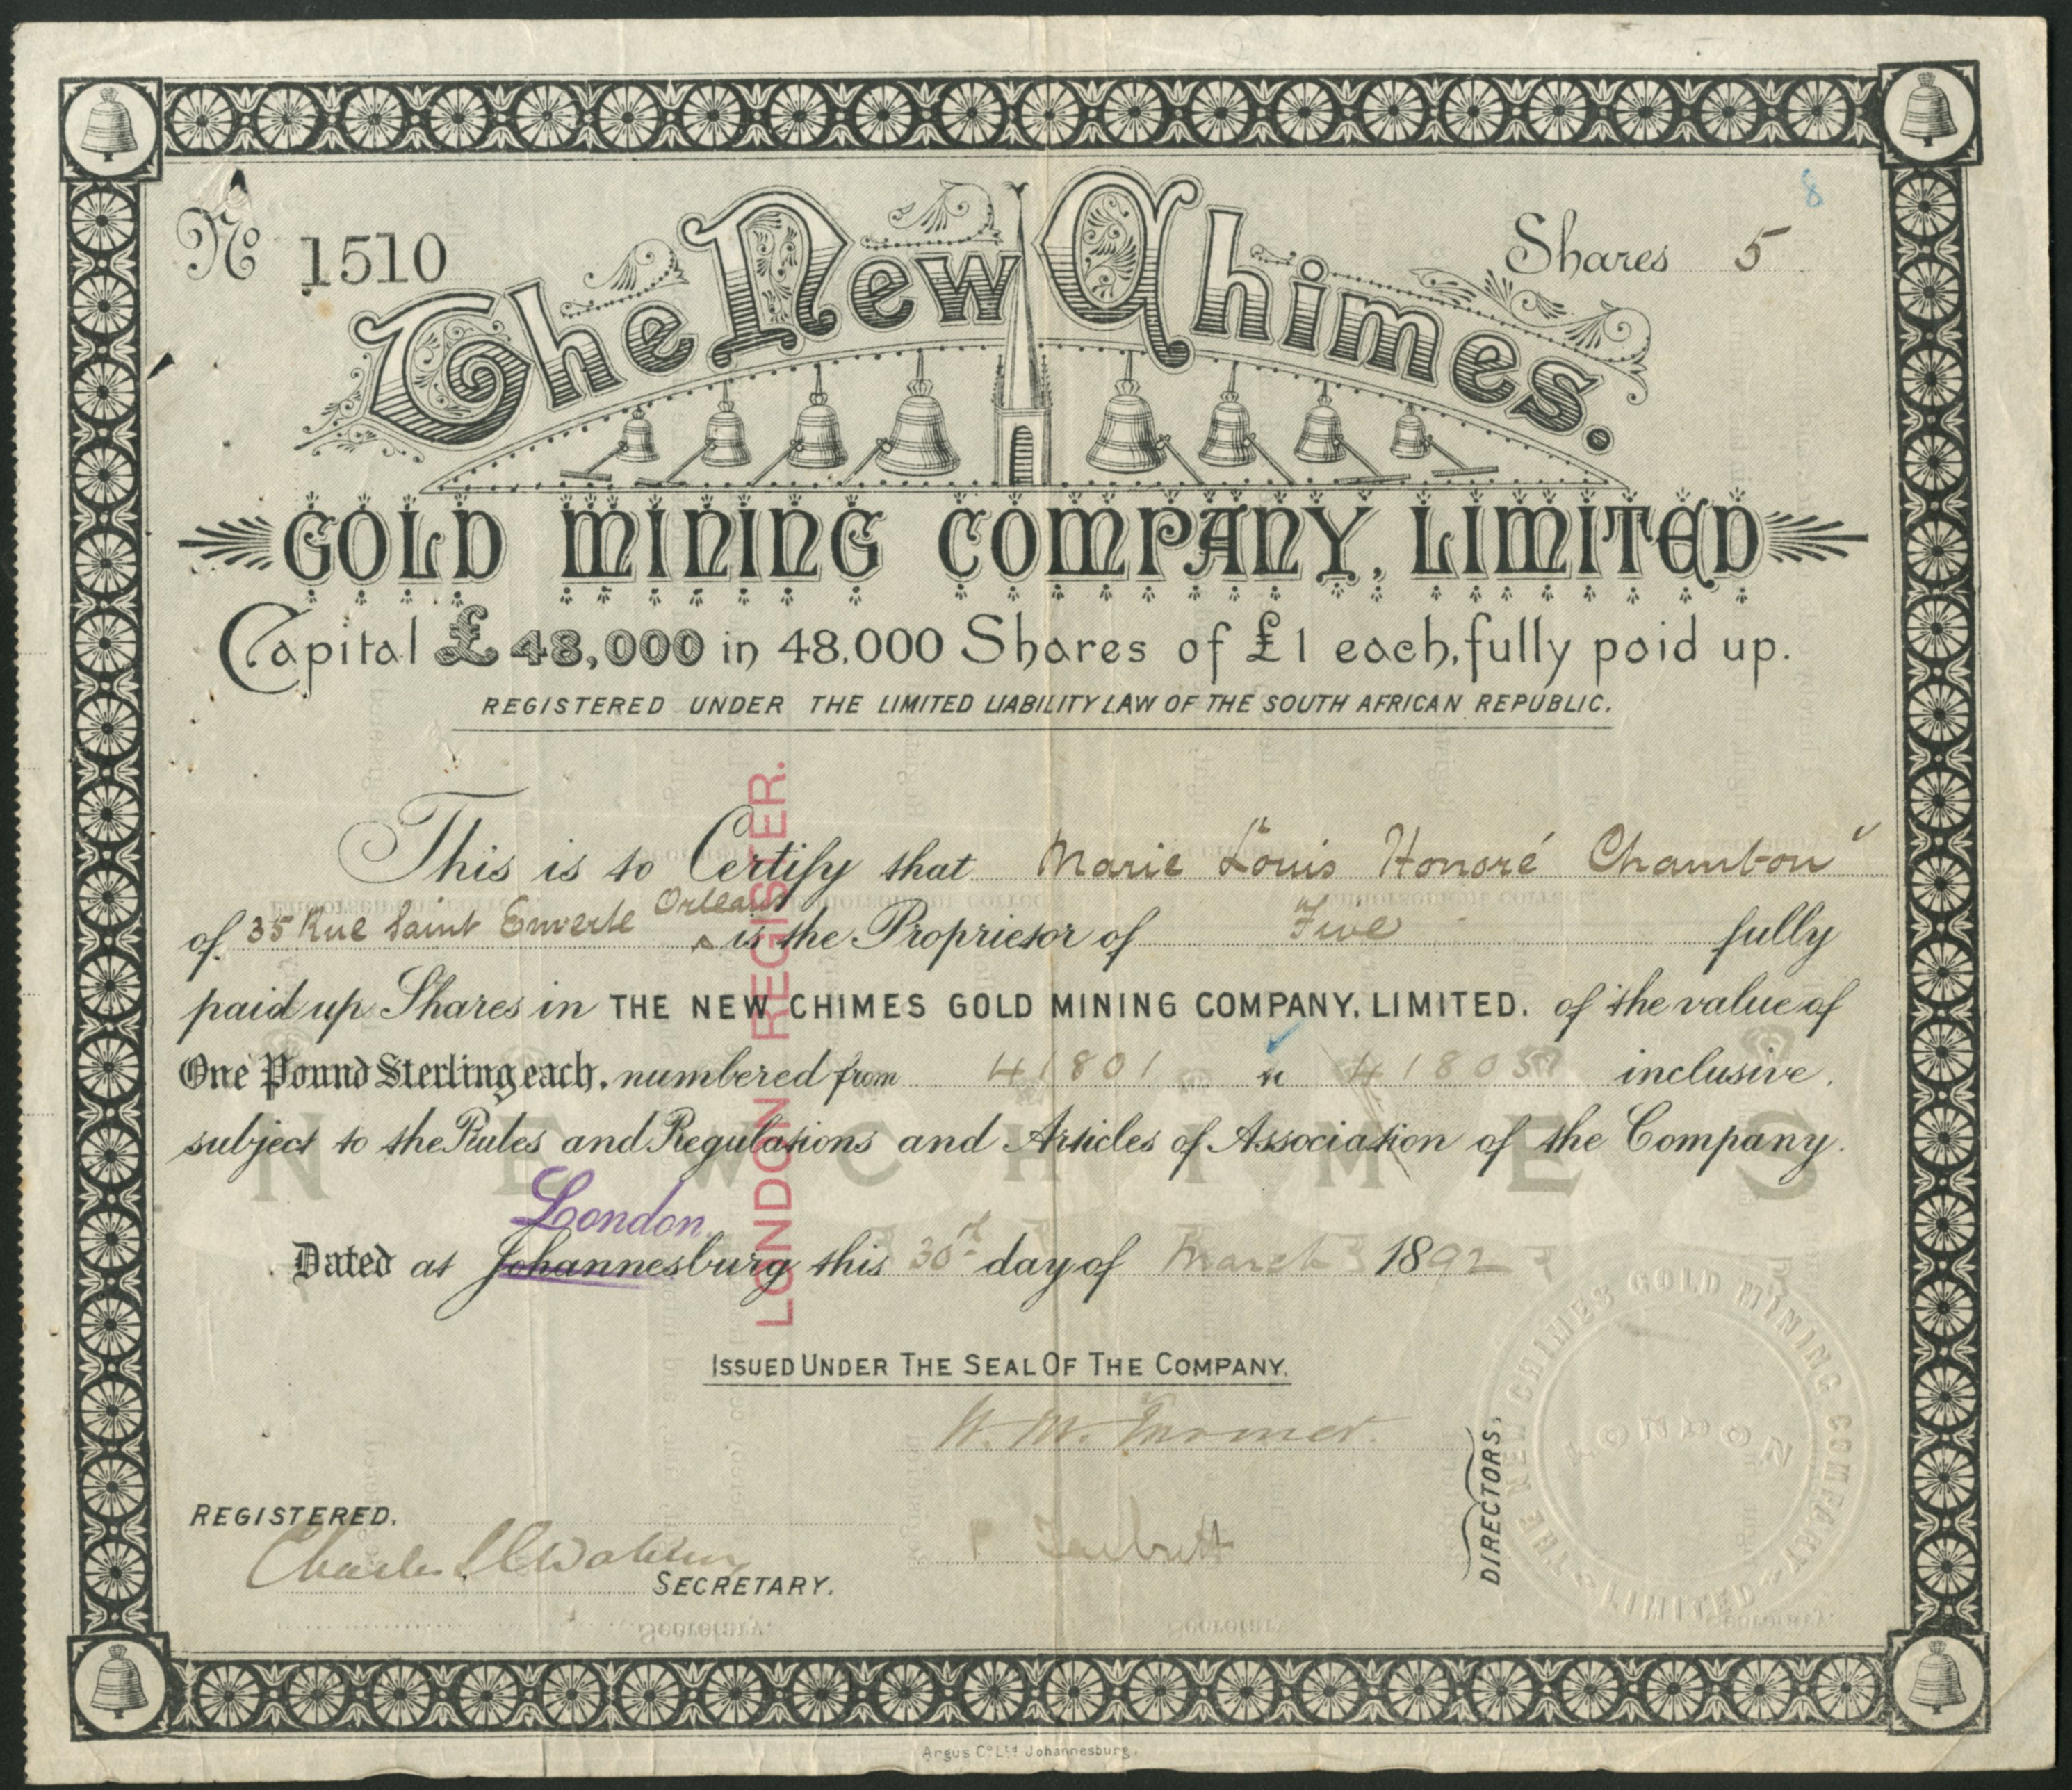 No 1510
Shares 5
8
The New Chimes.
GOLD MINING COMPANY, LIMITED
Capital £48,000 in 48,000 Shares of £1 each, fully paid up.
REGISTERED UNDER THE LIMITED LIABILITY LAW OF THE SOUTH AFRICAN REPUBLIC.
LONDON REGISTER.
This is to Certify that Marie Louis Honoré Chambon
of 35 Rue Saint Euverte Orleans is the Proprietor of Five fully
paid up Shares in THE NEW CHIMES GOLD MINING COMPANY, LIMITED. of the value of
One Pound Sterling each, numbered from 41801 to 41805 inclusive,
subject to the Rules and Regulations and Articles of Association of the Company.
NEW CHIMES
London.
Dated at Johannesburg this 30th day of March 1892
ISSUED UNDER THE SEAL OF THE COMPANY.
DIRECTORS.
THE NEW CHIMES GOLD MINING COMPANY LIMITED
LONDON
REGISTERED.
Charles
SECRETARY.
Argus Co. Ltd. Johannesburg.